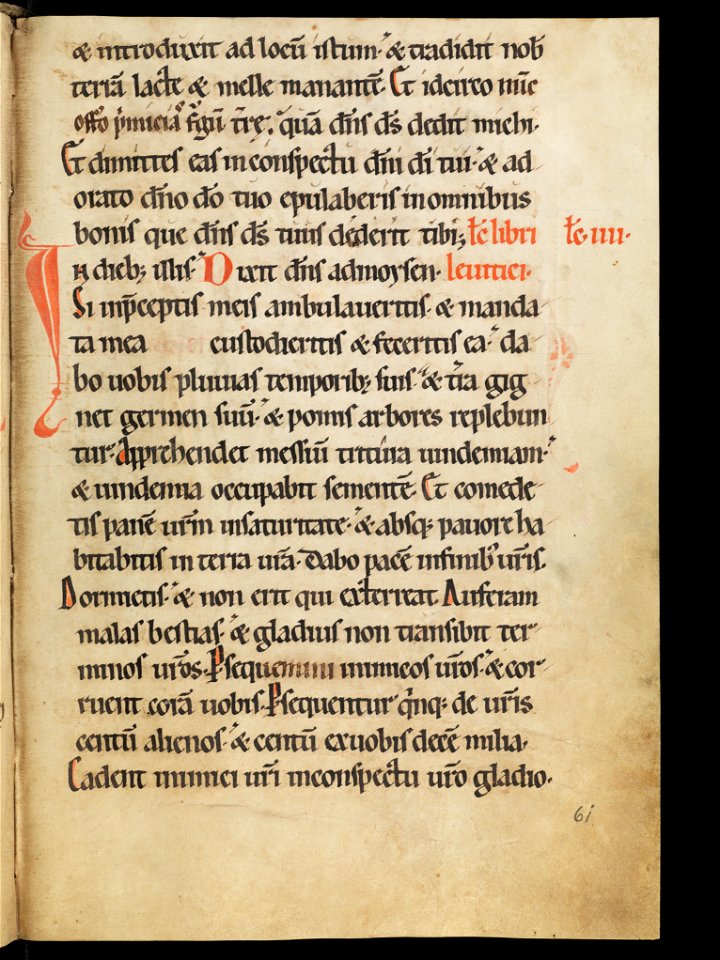 & introduxit ad locū istum· & tradidit nob̄
terrā lacte & melle manantē. Et idcirco nūc
offo p̄micia frugū tr̄e, quā dn̄s ds̄ dedit michi·
Et dimittes eas inconspectu dn̄i dī tui· & ad
orato dn̄o dō tuo epulaberis inomnibus
bonis que dn̄s ds̄ tuus dederit tibi; łc̄ libri łc̄· iiii·
In dieb; illis· Dixit dn̄s admoysen· leuitici·
Si inp̄ceptis meis ambulaueritis· & manda
ta mea custodieritis & feceritis ea· da
bo uobis pluuias temporib; suis· & tr̄a gig
net germen suū· & pomis arbores replebun
tur· Apprehendet messiū tritura uindemiam·
& uindemia occupabit sementē· Et comede
tis panē ur̄m insaturitate· & absq; pauore ha
bitabitis in terra ur̄a· Dabo pacē infinib; ur̄is.
Dormietis· & non erit qui exterreat Auferam
malas bestias· & gladius non transibit ter
minos ur̄os· Psequemini inimicos ur̄os· & cor
ruent corā uobis· Psequentur q̄nq; de ur̄is
centū alienos· & centū exuobis decē milia·
Cadent inimici ur̄i inconspectu ur̄o gladio·
61